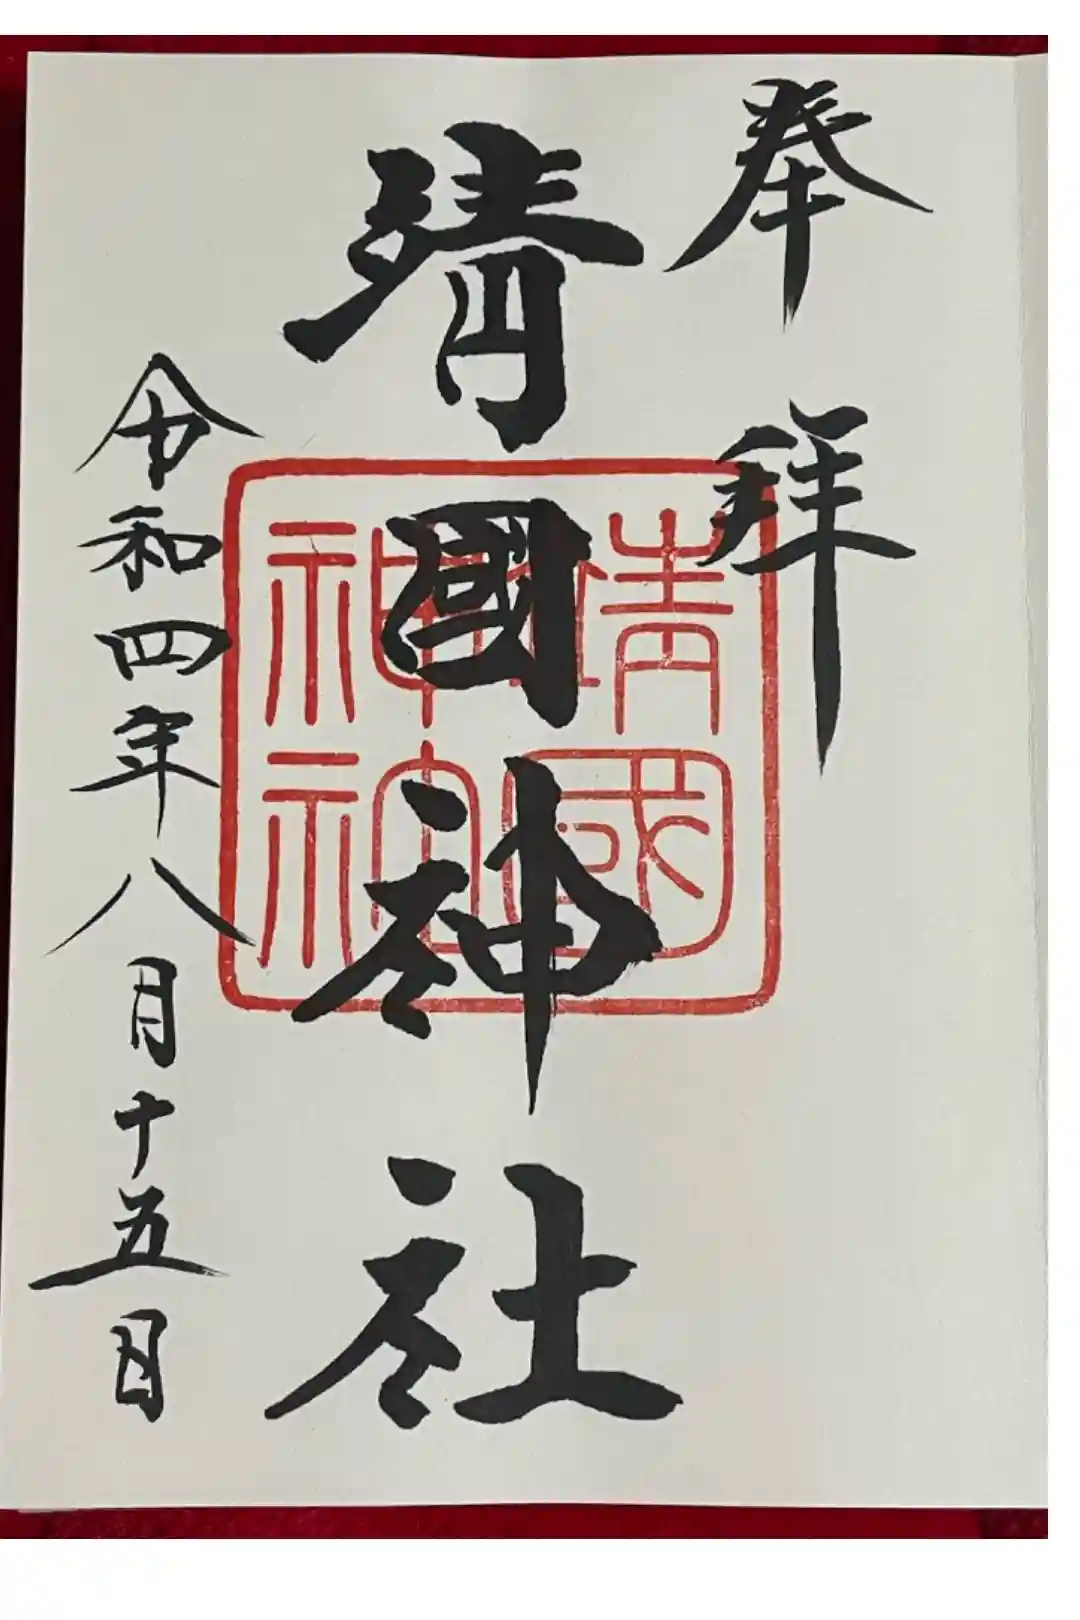 奉拝
靖國神社
令和四年八月十五日
靖國
神社